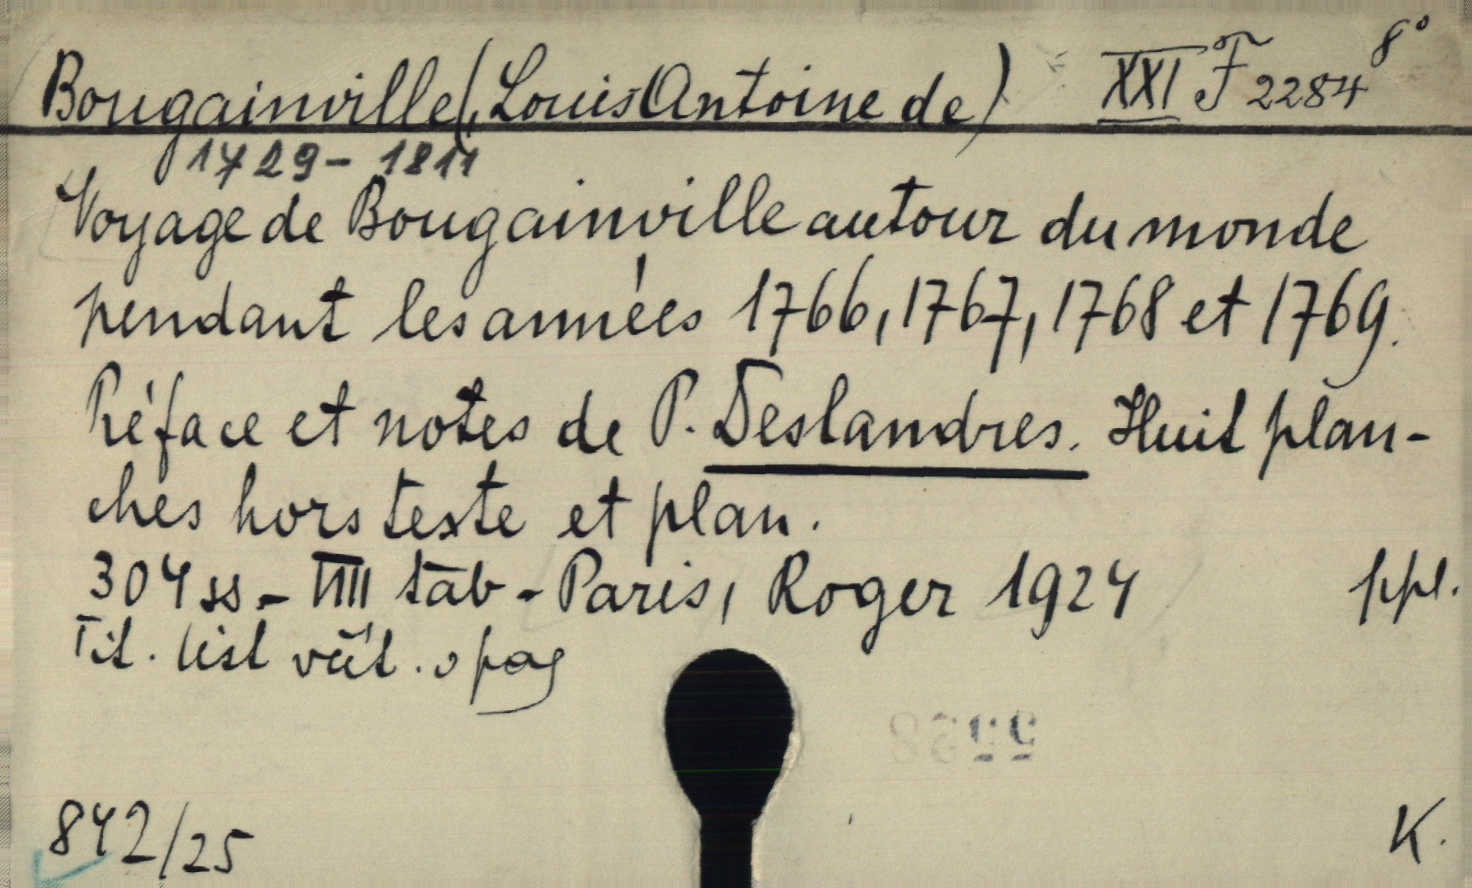 Bougainville (, Louis Antoine de) XXI F 2284 8°
1729 - 1811
Voyage de Bougainville autour du monde
pendant les années 1766, 1767, 1768 et 1769.
Préface et notes de P. Deslandres. Huit plan-
ches hors texte et plan.
304 ss. - VIII táb - Paris, Roger 1924 ppl.
Tit. list
842/25 K.